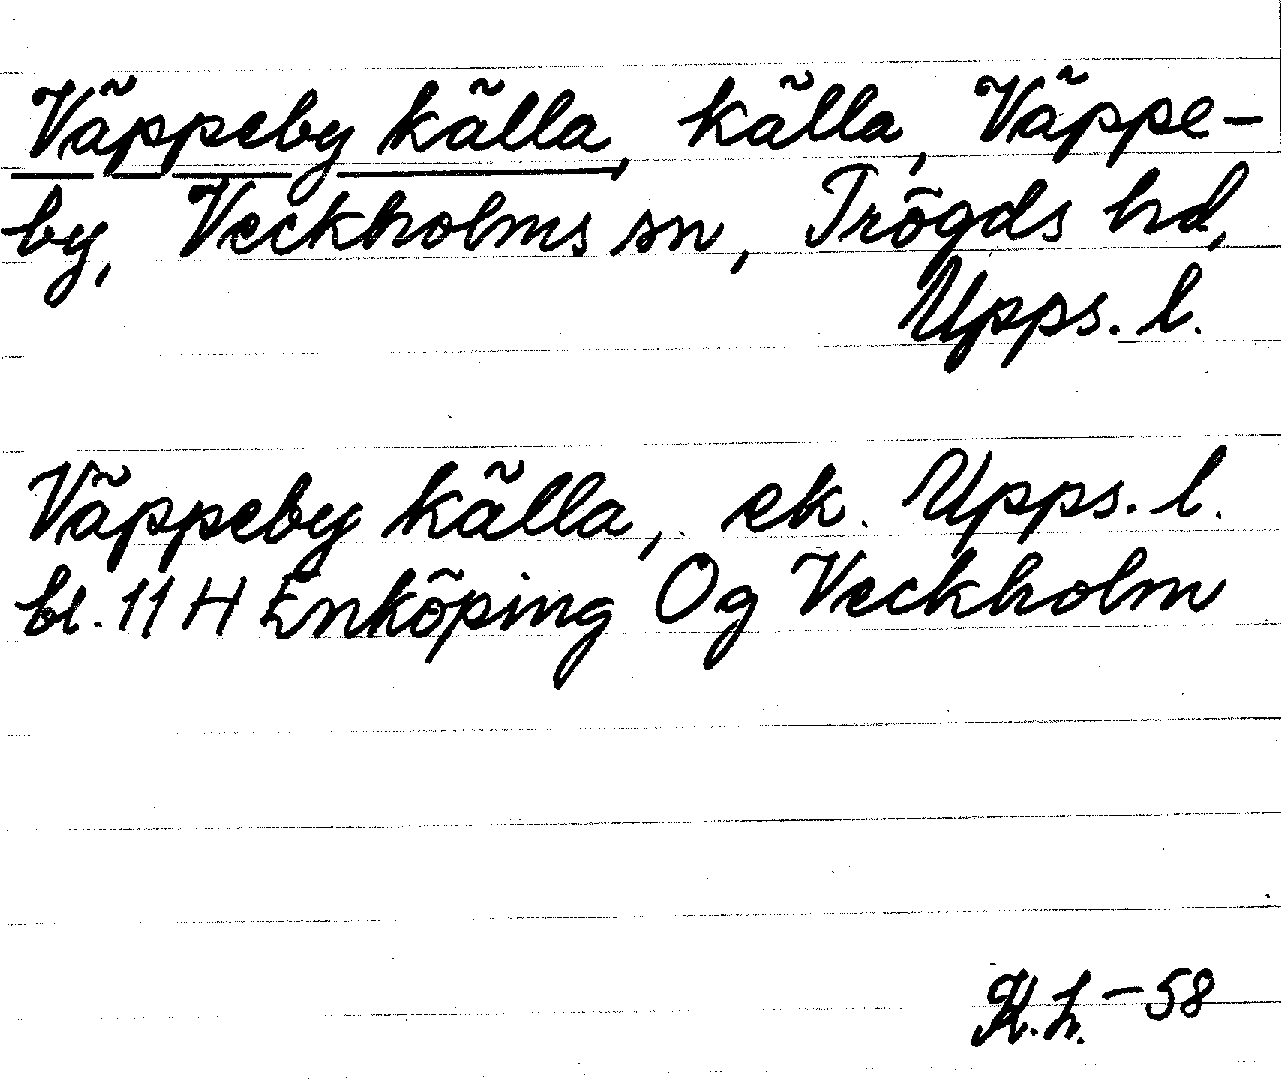 Väppeby källa, källa, Väppe-
by, Veckholms sn, Trögds hd,
Upps. l.
Väppeby källa, ek. Upps. l.
bl. 11 H Enköping Og Veckholm
K.L. -58